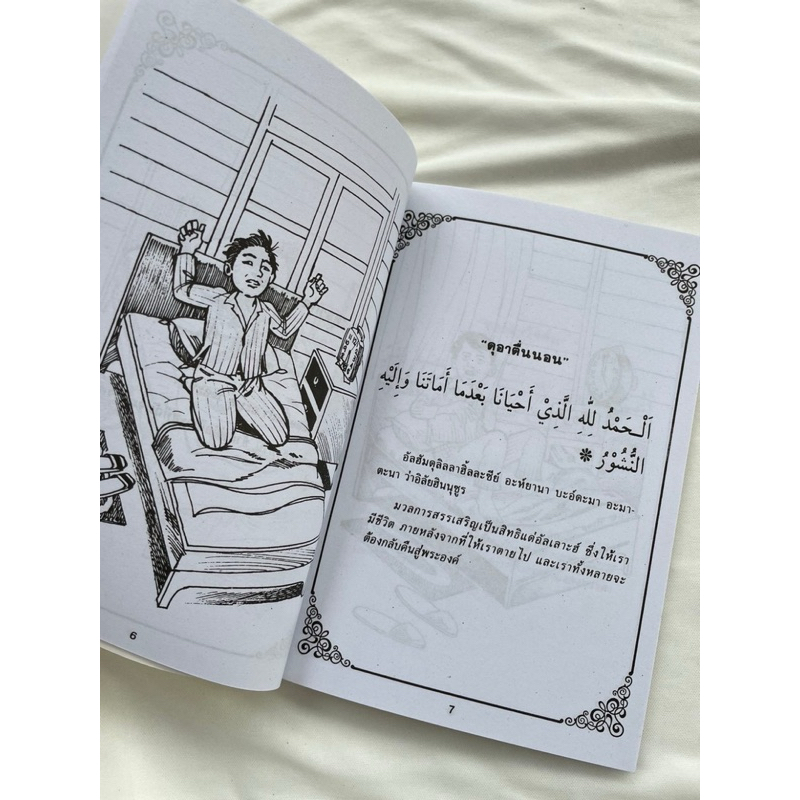 6
"ดุอาตื่นนอน"
اَلْـحَمْدُ لِلّٰهِ الَّذِيْ أَحْيَانَا بَعْدَمَا أَمَاتَنَا وَإِلَيْهِ
النُّشُوْرُ ❋
อัลฮัมดุลิลลาฮิ้ลละซีย์ อะห์ยานา บะอ์ดะมา อะมา-
ตะนา ว่าอิลัยฮินนุชูร
มวลการสรรเสริญเป็นสิทธิแด่อัลเลาะฮ์ ซึ่งให้เรา
มีชีวิต ภายหลังจากที่ให้เราตายไป และเราทั้งหลายจะ
ต้องกลับคืนสู่พระองค์
7